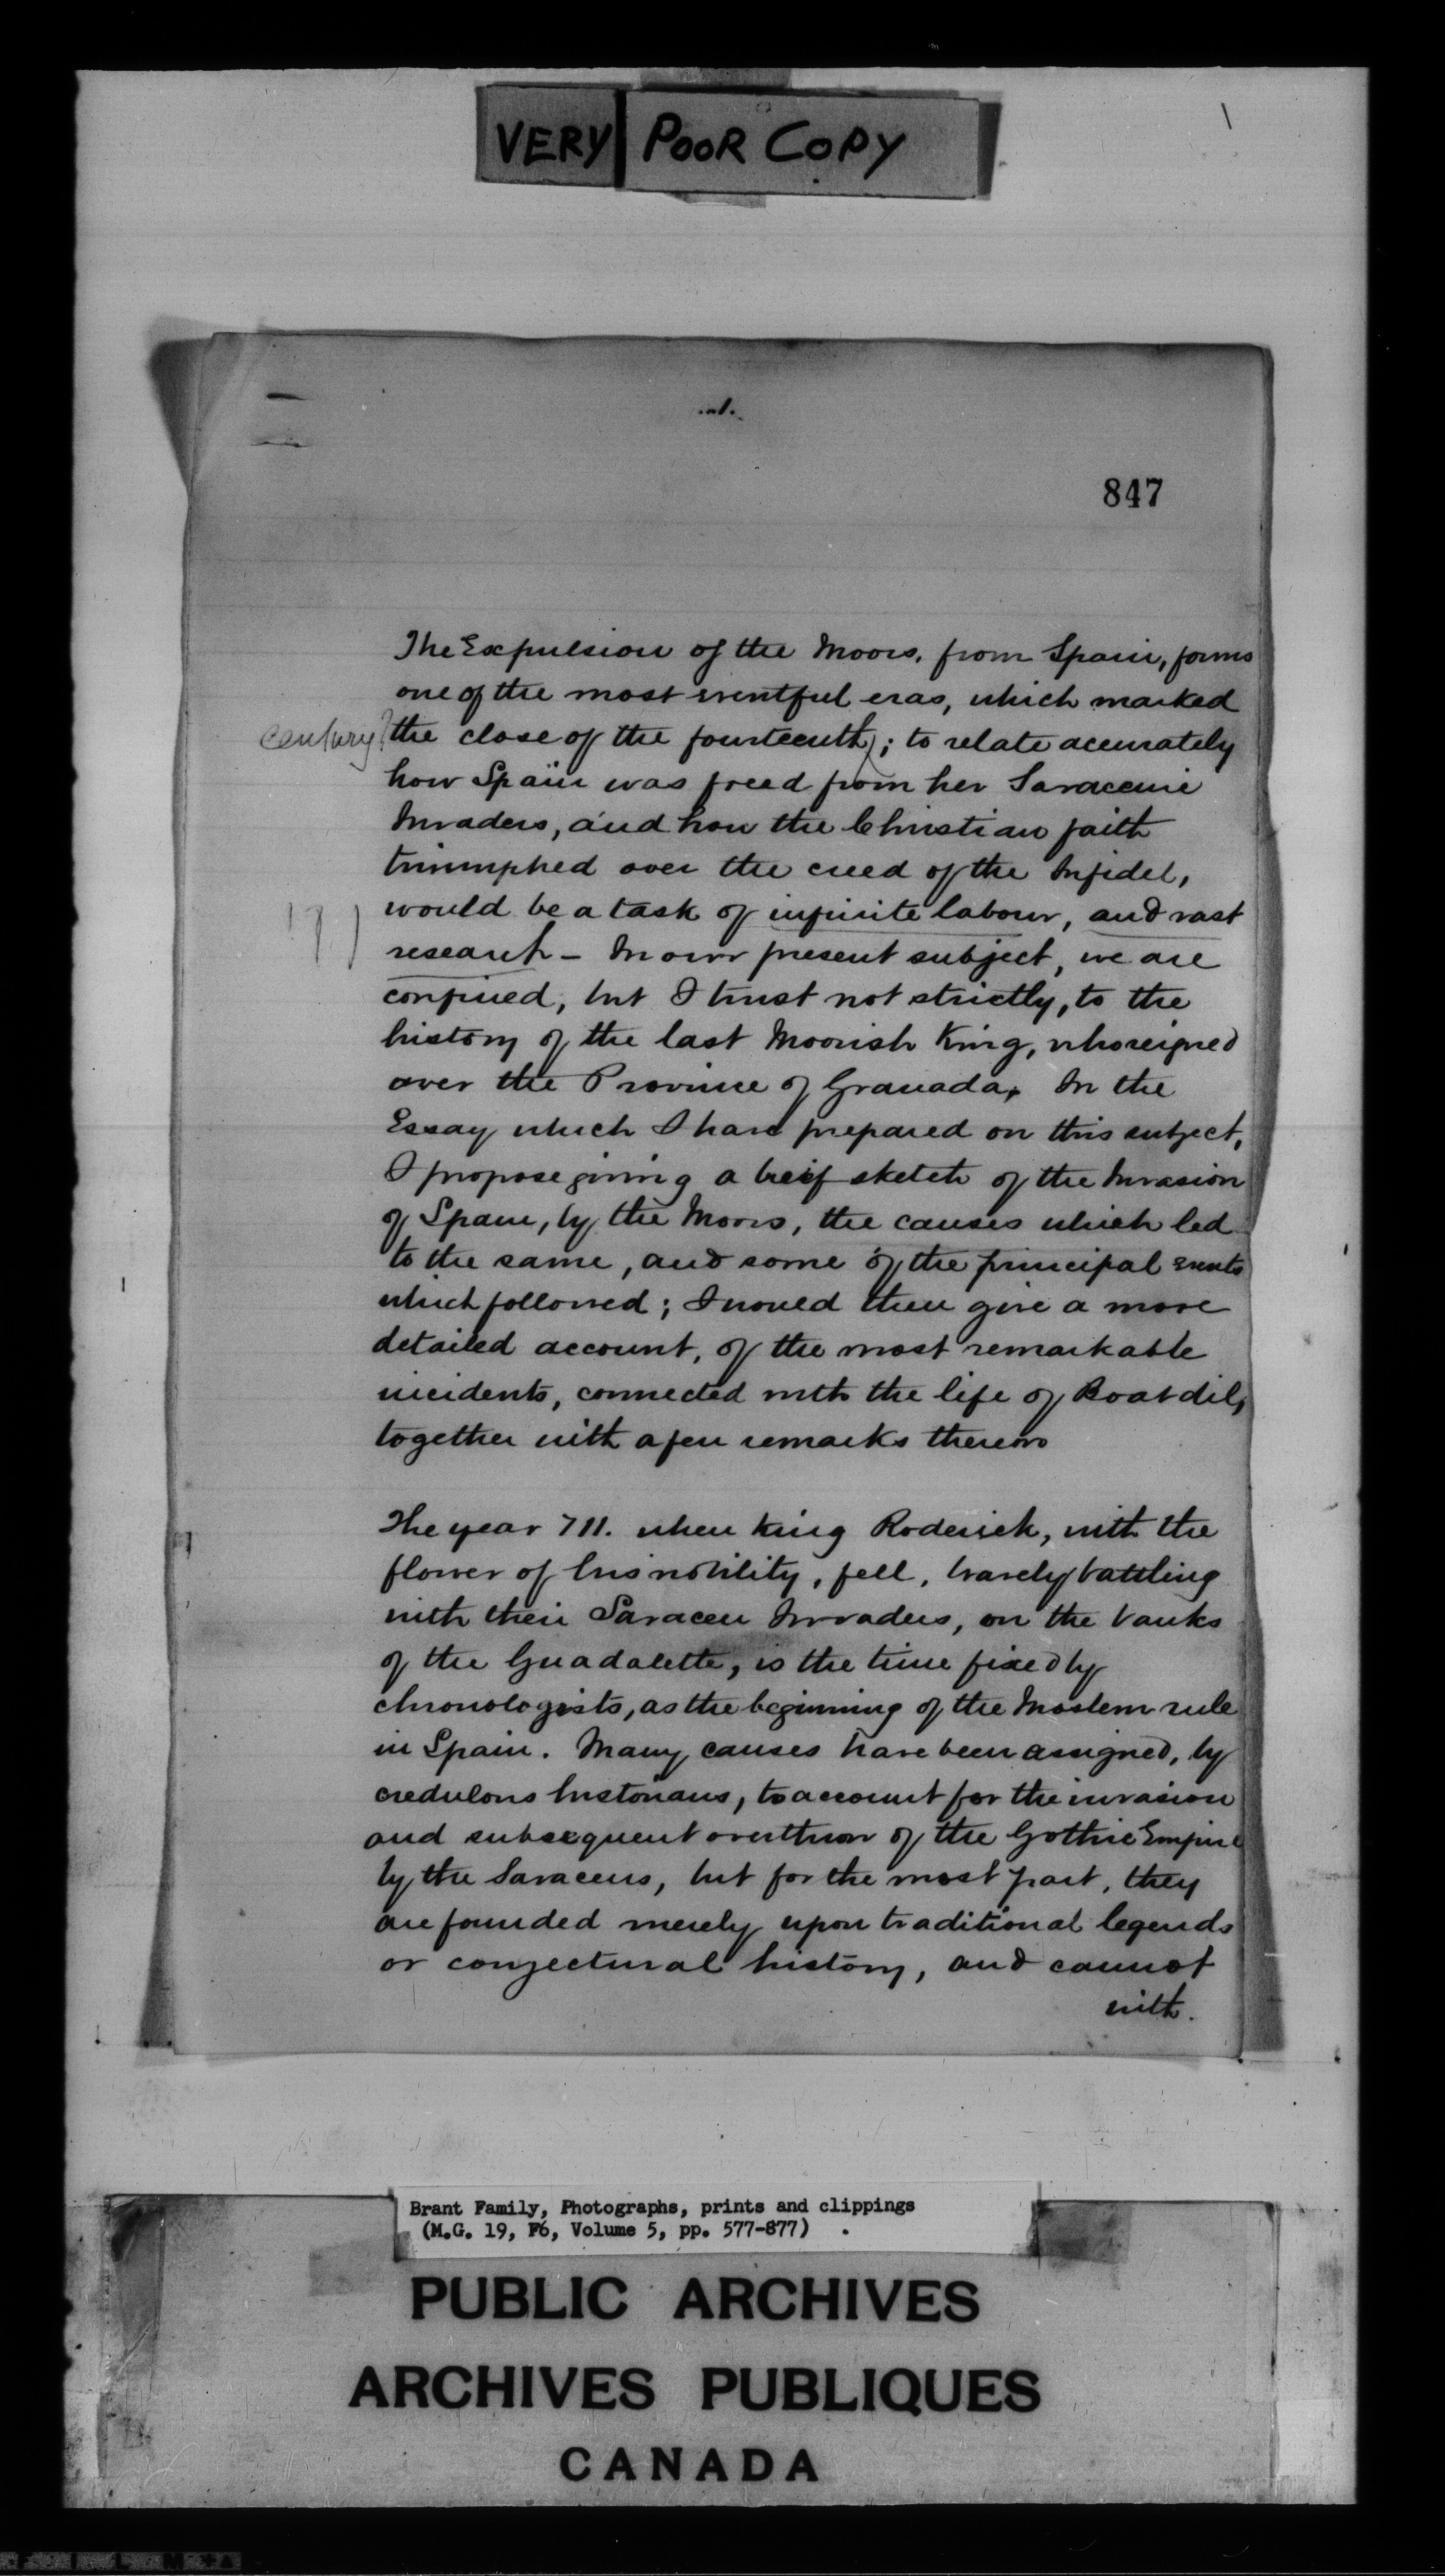 VERY POOR COPY
847
The Expulsion of the Moors, from Spain, forms
one of the most eventful eras, which marked
century? the close of the fourteenth; to relate accurately
how Spain was freed from her Saracenic
Invaders, and how the Christian faith
triumphed over the creed of the Infidel,
would be a task of infinite labour, and vast
research – In our present subject, we are
confined, but I trust not strictly, to the
history of the last Moorish King, who reigned
over the Province of Granada. In the
Essay which I have prepared on this subject,
I propose giving a breif sketch of the Invasion
of Spain, by the Moors, the causes which led
to the same, and some of the principal events
which followed; I would then give a more
detailed account, of the most remarkable
incidents, connected with the life of Boabdil,
together with a few remarks thereon
The year 711. when King Roderick, with the
flower of his nobility, fell, bravely battling
with their Saracen Invaders, on the banks
of the Guadalette, is the time fixed by
chronologists, as the beginning of the Moslem rule
in Spain. Many causes have been assigned, by
credulous historians, to account for the invasion
and subsequent overthrow of the Gothic Empire
by the Saracens, but for the most part, they
are founded merely upon traditional legends
or conjectural history, and cannot
with.
Brant Family, Photographs, prints and clippings
(M.G. 19, F6, Volume 5, pp. 577-877)
PUBLIC ARCHIVES
ARCHIVES PUBLIQUES
CANADA